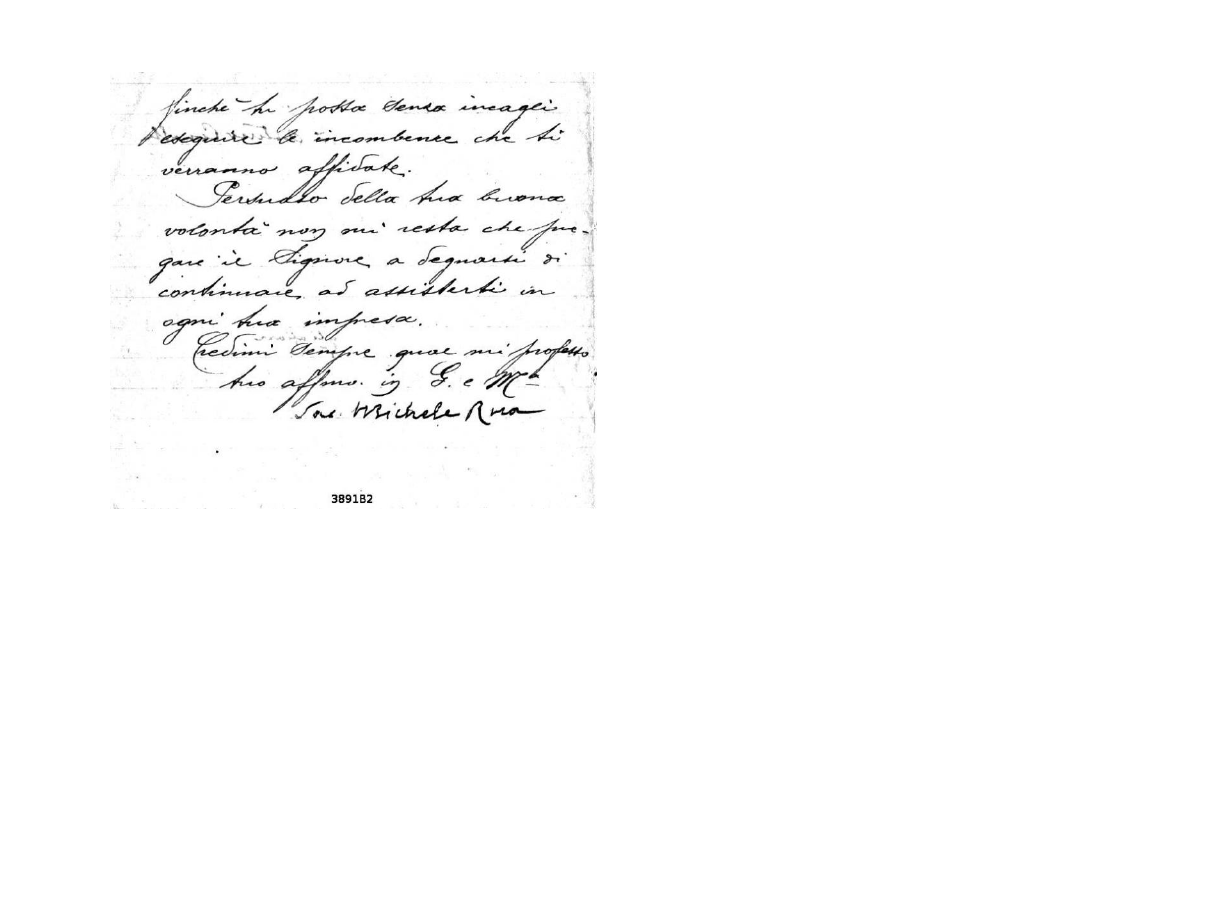 finchè tu possa senza incagli
eseguire le incombenze che ti
verranno affidate.
Persuaso della tua buona
volontà non mi resta che pre-
gare il Signore a degnarsi di
continuare ad assisterti in
ogni tua impresa.
Credimi sempre quae mi professo
tuo affmo. in G. e Mª
Sac. Michele Rua
3891B2